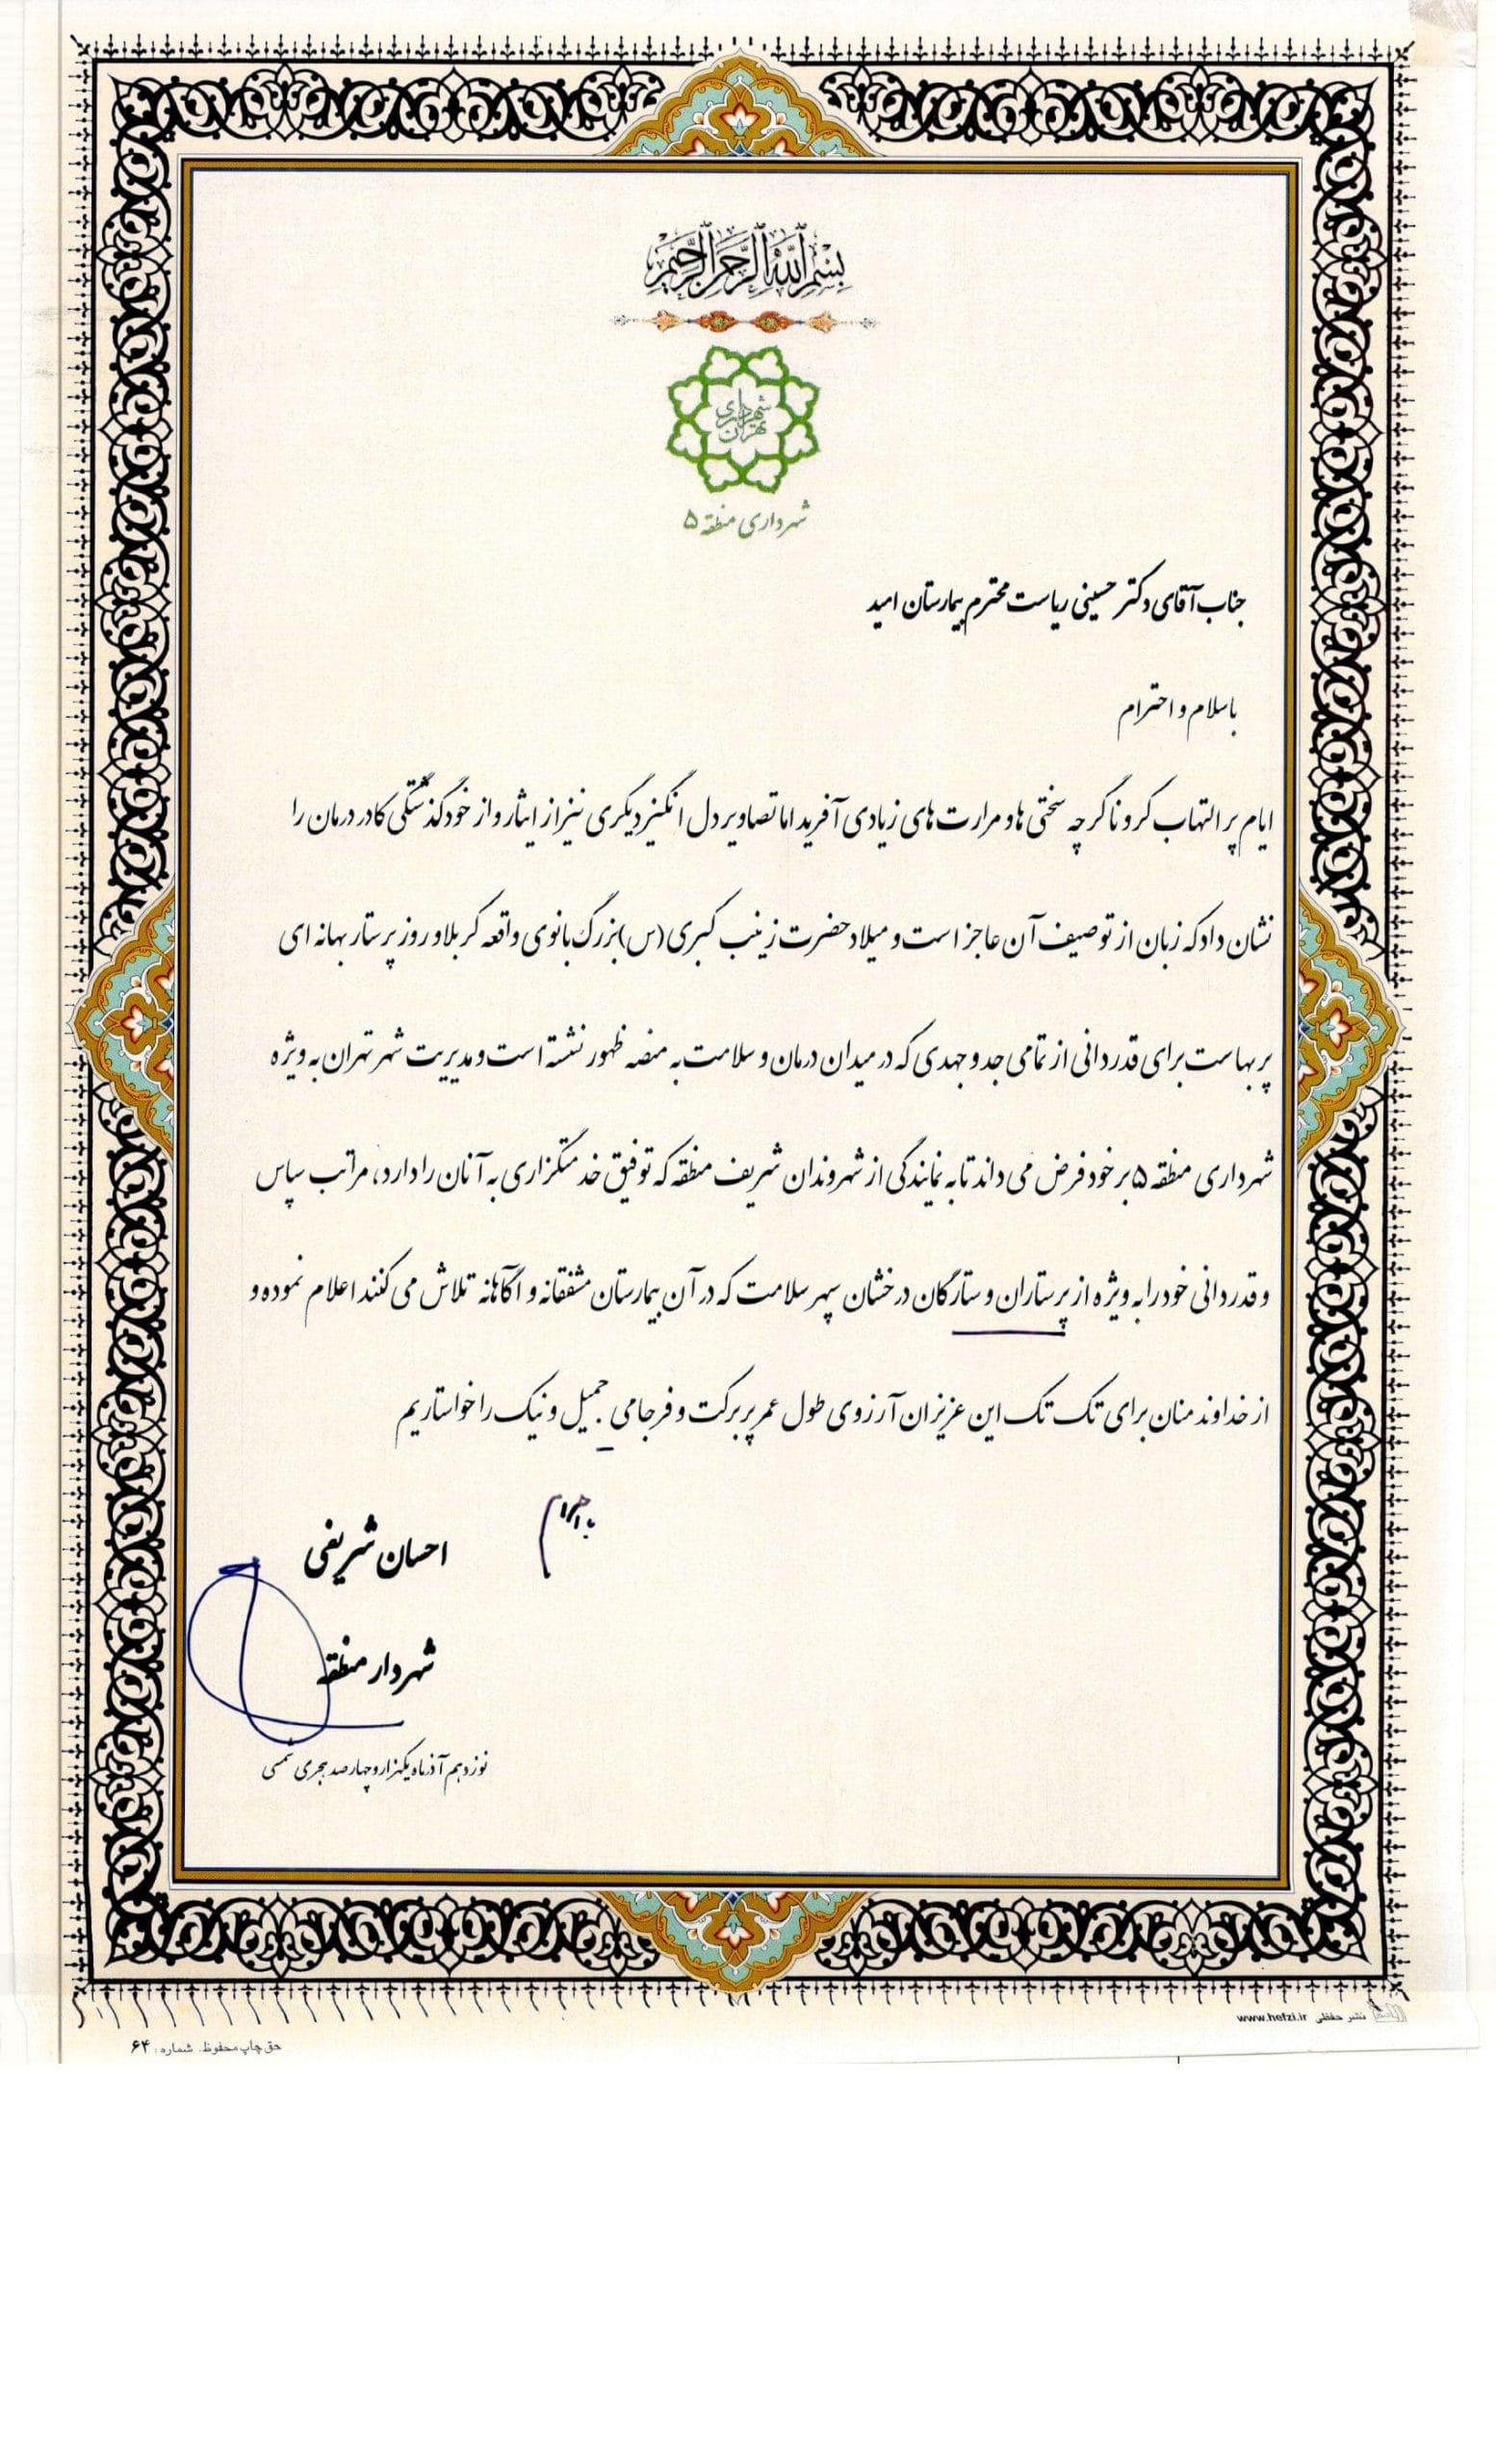 بسم الله الرحمن الرحیم
شهرداری
تهران
شهرداری منطقه ۵
جناب آقای دکتر حسینی ریاست محترم بیمارستان امید
باسلام و احترام
ایام پر التهاب کرونا گرچه سختی ها و مرارت های زیادی آفرید اما تصاویر دل انگیز دیگری نیز از ایثار و از خود گذشتگی کادر درمان را
نشان داد که زبان از توصیف آن عاجز است و میلاد حضرت زینب کبری (س) بزرگ بانوی واقعه کربلا و روز پرستار بهانه ای
پر بهاست برای قدردانی از تمامی جد و جهدی که در میدان درمان و سلامت به منصه ظهور نشسته است و مدیریت شهر تهران به ویژه
شهرداری منطقه ۵ بر خود فرض می داند تا به نمایندگی از شهروندان شریف منطقه که توفیق خدمتگزاری به آنان را دارد، مراتب سپاس
و قدردانی خود را به ویژه از پرستاران و ستارگان درخشان سپهر سلامت که در آن بیمارستان مشفقانه و آگاهانه تلاش می کنند اعلام نموده و
از خداوند منان برای تک تک این عزیزان آرزوی طول عمر پر برکت و فرجامی . جمیل و نیک را خواستاریم
با احترام
احسان شریفی
شهردار منطقه
نوزدهم آذرماه یکهزار و چهارصد هجری شمسی
نشر حفظی www.hefzi.ir
حق چاپ محفوظ. شماره: ۶۴